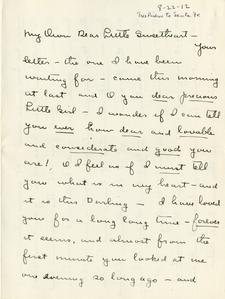 8-22-12
to Santa Fe
My Own Dear Little Sweetheart -
Your
letter - the one I have been
waiting for - came this morning
at last and O you dear precious
Little Girl - I wonder if I can tell
you ever how dear and lovable
and considerate and good you
are! O I feel as if I must tell
you what is in my heart - and
it is this Darling - I have loved
you for a long long time - forever
it seems, and almost from the
first minute you looked at me
one evening so long ago - and